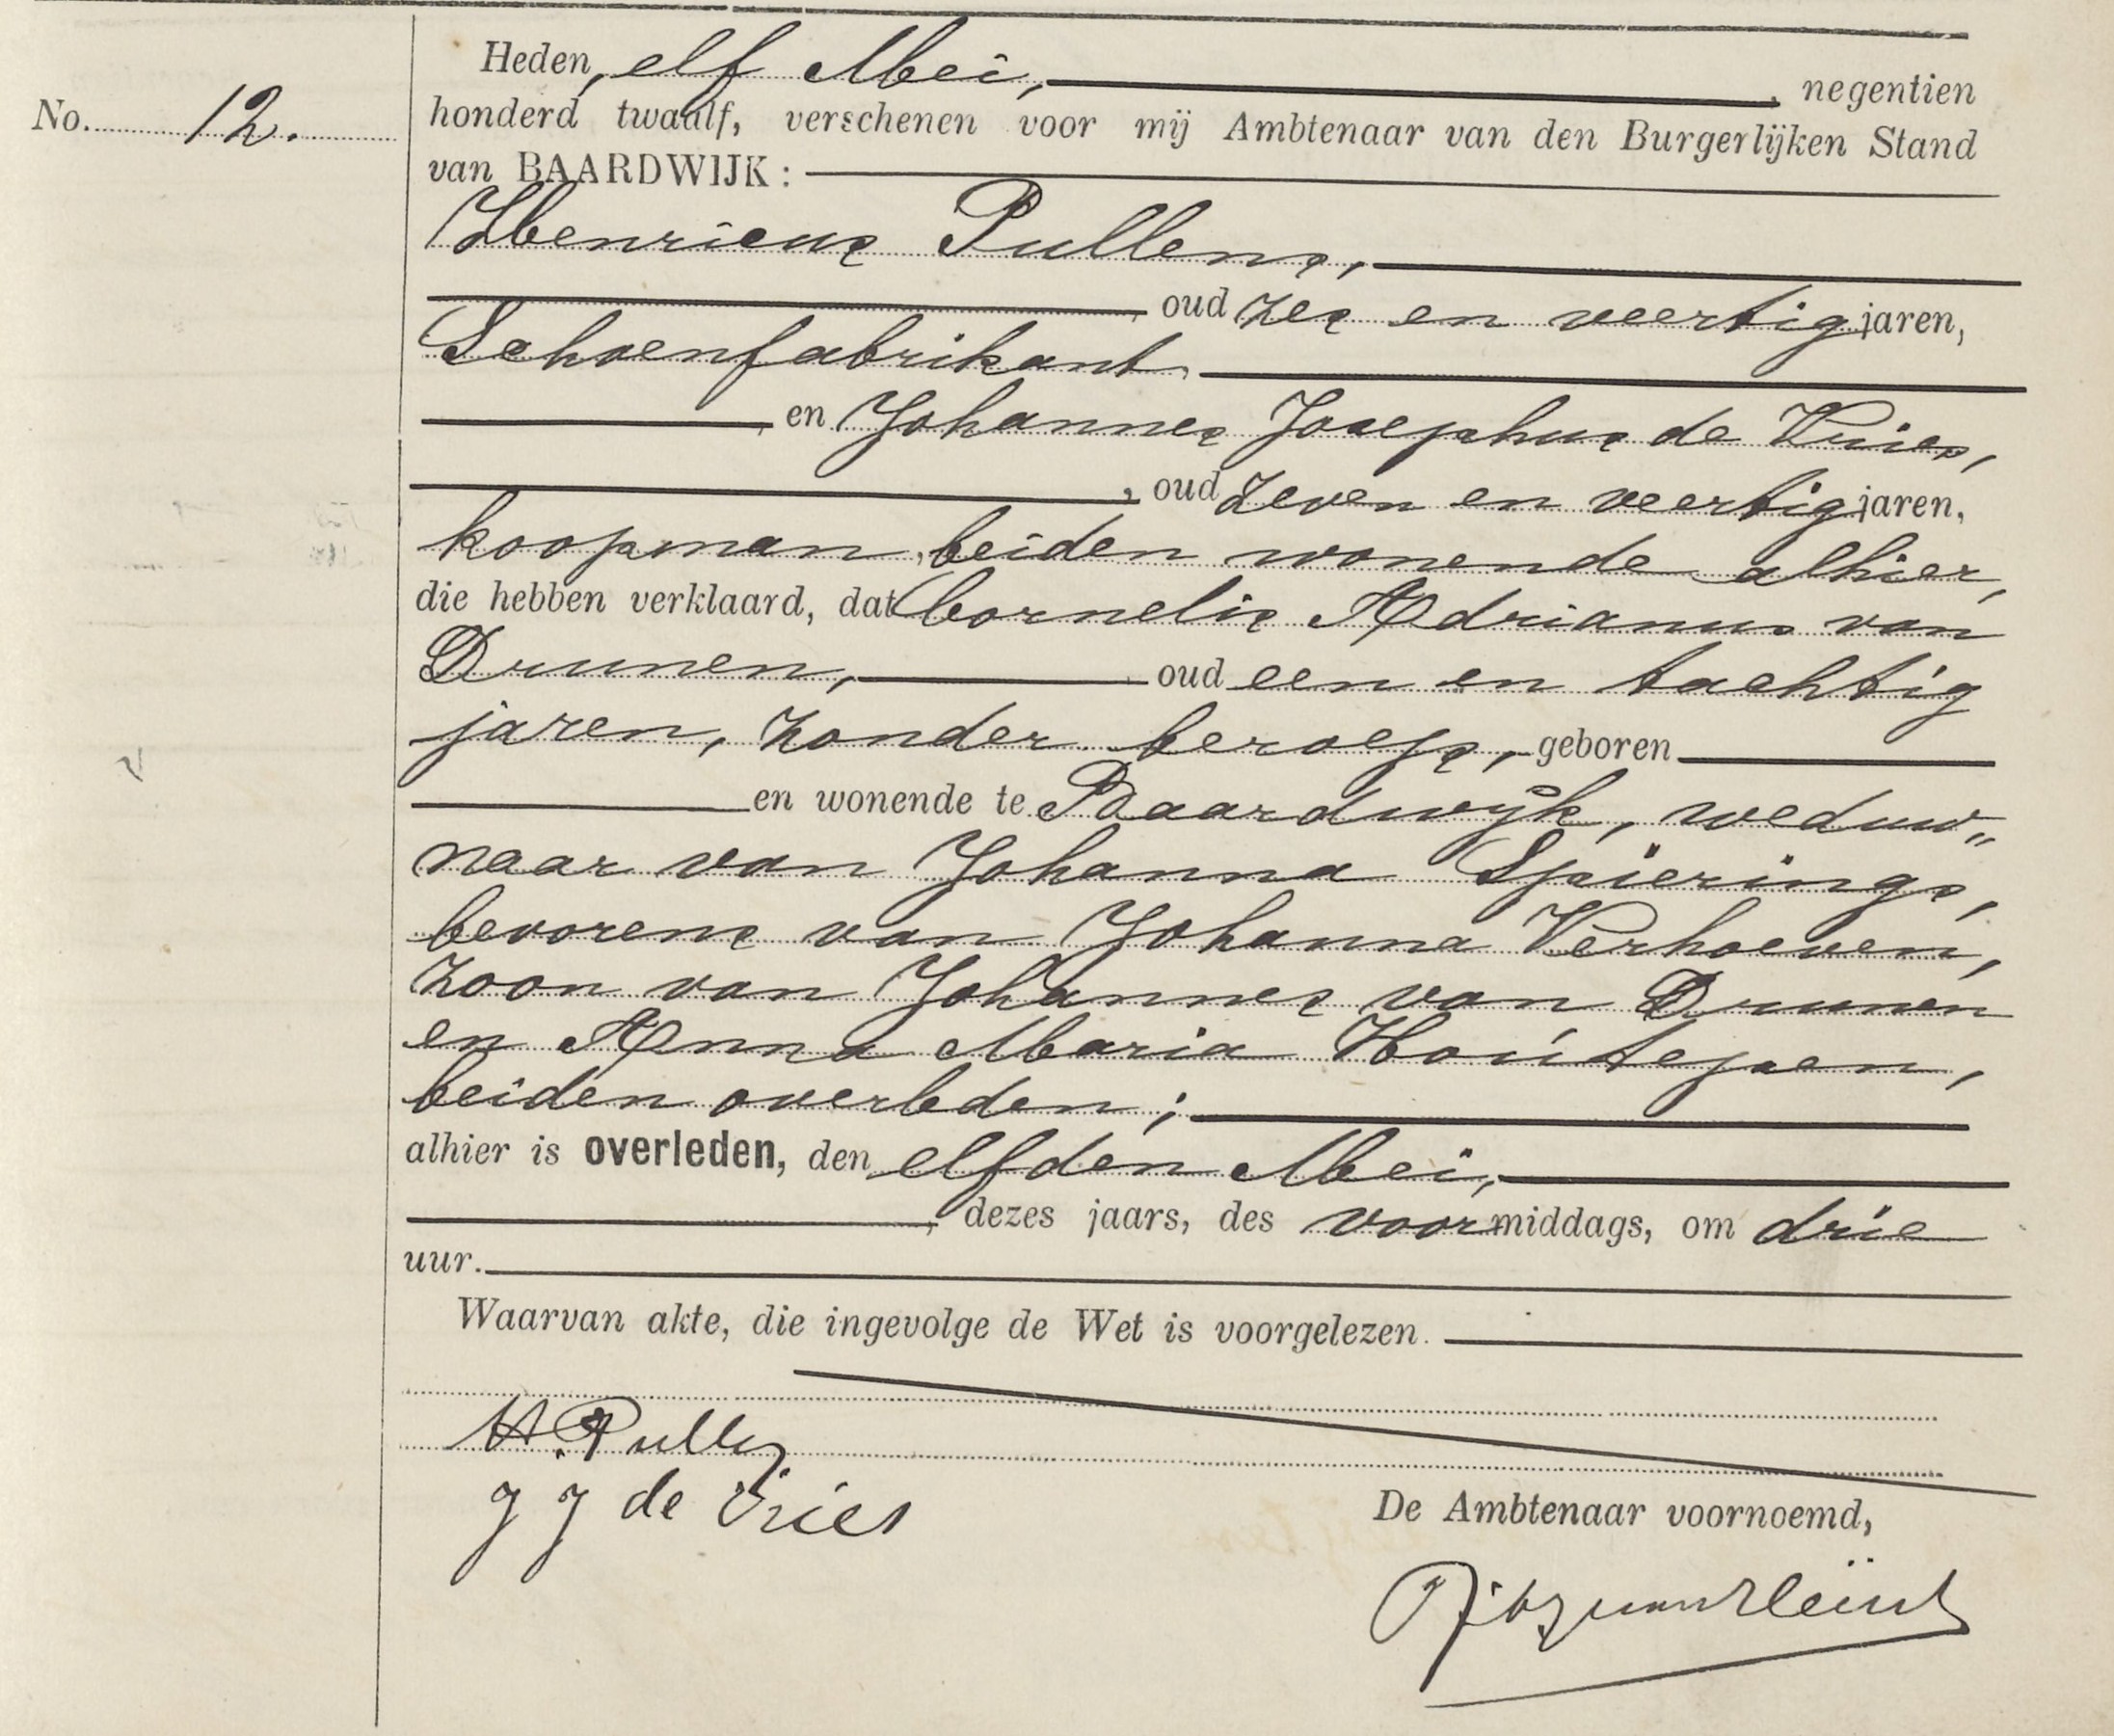 Heden, elf Mei, , negentien
No. 12.
honderd twaalf, verschenen voor mij Ambtenaar van den Burgerlijken Stand
van BAARDWIJK:
Henricus Pullens,
, oud zes en veertig jaren,
Schoenfabrikant
, en Johannes Josephus de Vries,
, oud zeven en veertig jaren,
koopman, beiden wonende alhier,
die hebben verklaard, dat Cornelis Adrianus van
Drunen, oud een en tachtig
jaren, zonder beroep, geboren
en wonende te Baardwijk, weduw„
naar van Johanna Spierings,
bevorens van Johanna Verhoeven,
zoon van Johannes van Drunen
en Anna Maria Houtepen,
beiden overleden;
alhier is overleden, den elfden Mei,
, dezes jaars, des voormiddags, om drie
uur.
Waarvan akte, die ingevolge de Wet is voorgelezen.
H. Pullens
J J de Vries
De Ambtenaar voornoemd,